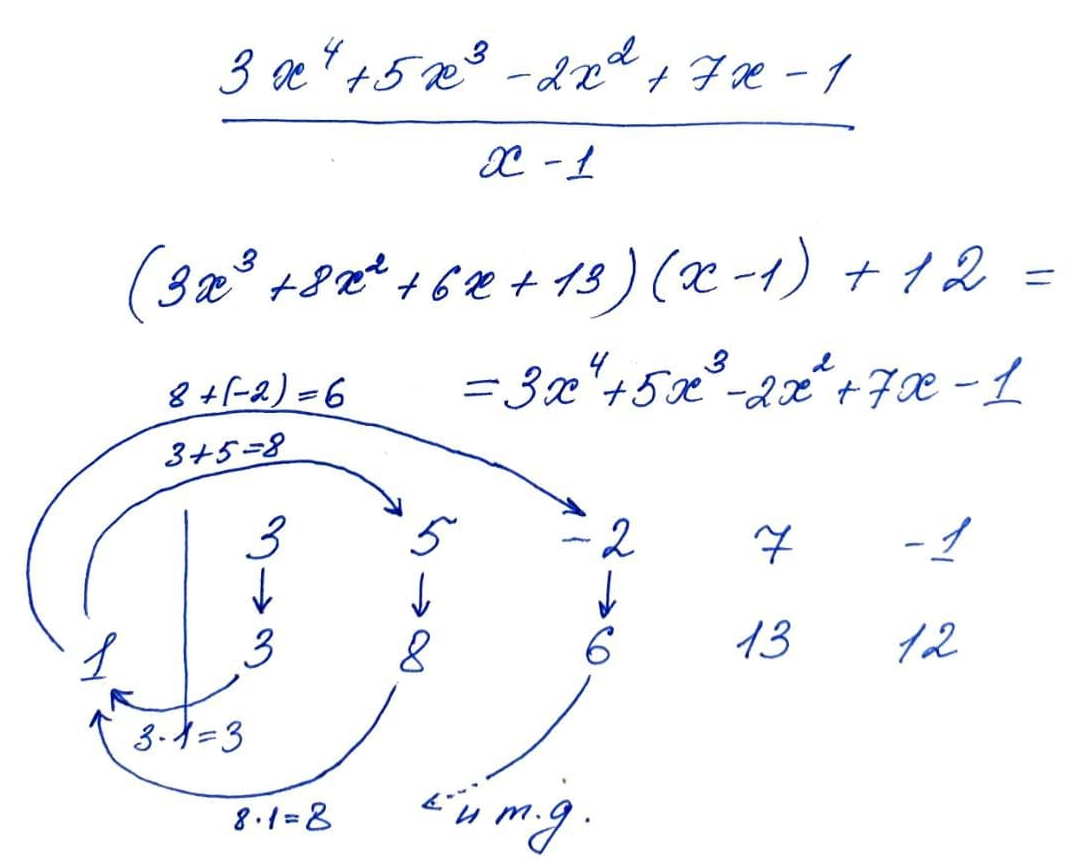 3x⁴+5x³-2x²+7x-1
x-1
(3x³+8x²+6x+13)(x-1)+12=
=3x⁴+5x³-2x²+7x-1
8+(-2)=6
3+5=8
3 5 -2 7 -1
1 3 8 6 13 12
3·1=3
8·1=8
и т.д.